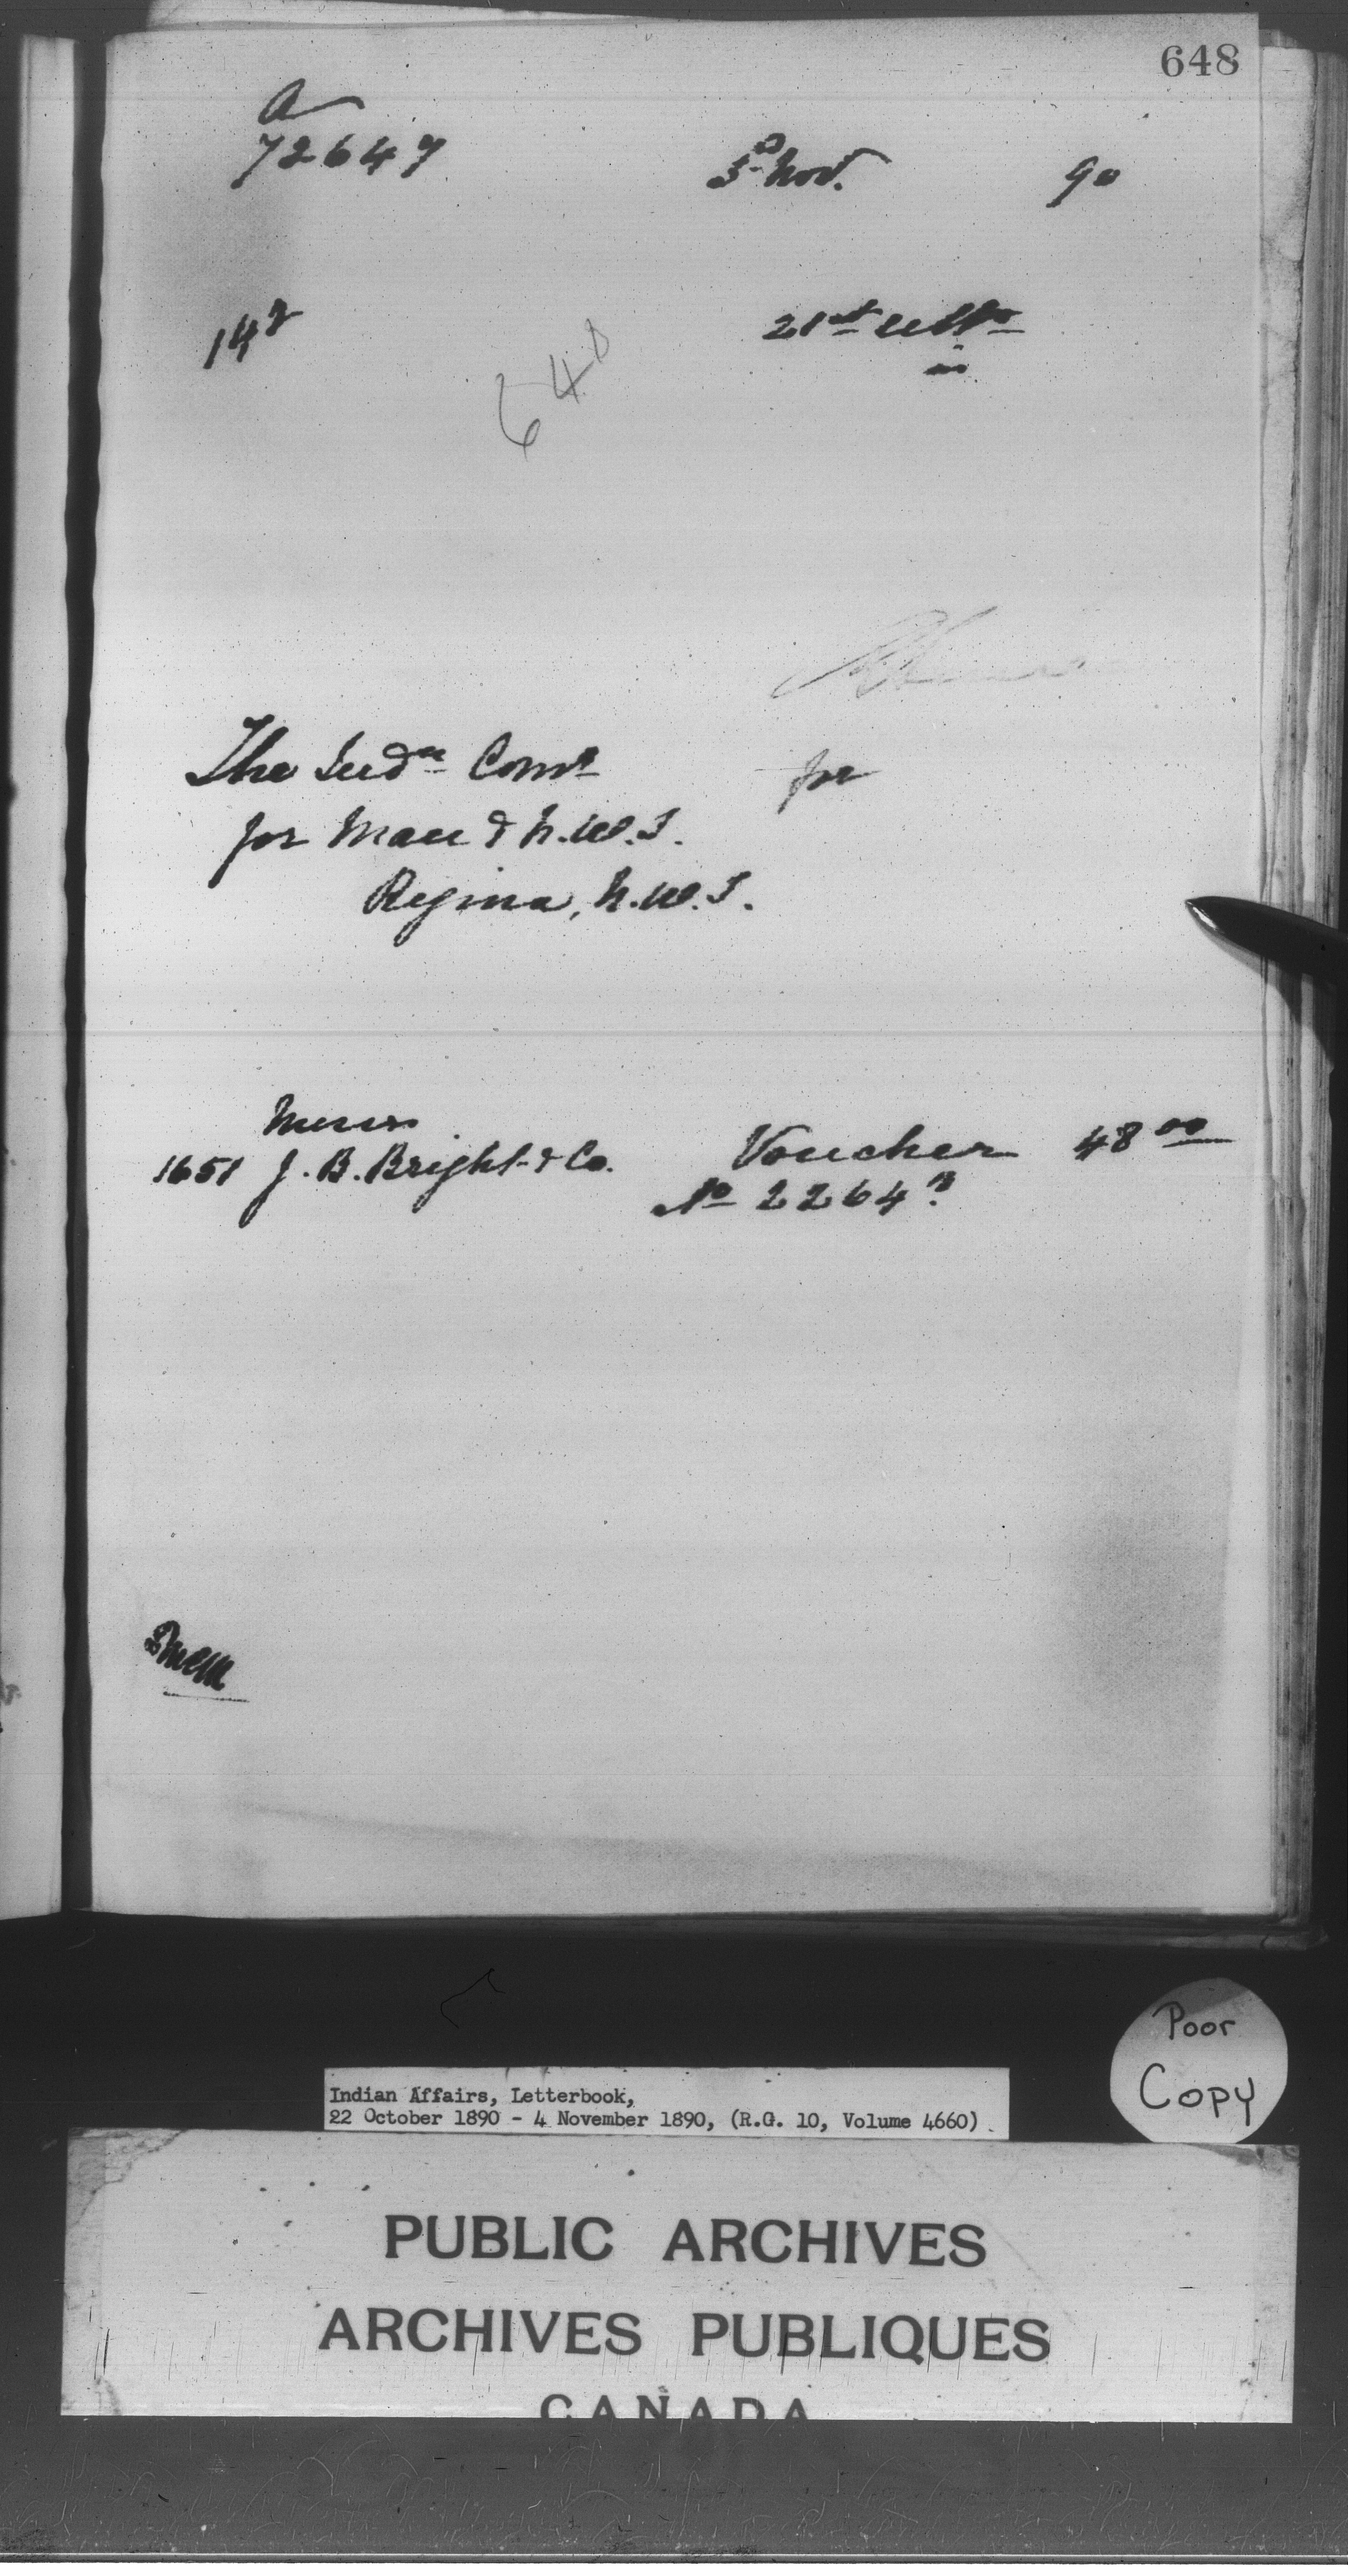 648
a
72647
3d Nov. 90
21st ulto
in
The Indn Comr for
for Man & N.W.T.
Regina, N.W.T.
Messrs
1651 J. B. Bright & Co. Voucher 48 00
No 2264
Poor
Copy
Indian Affairs, Letterbook,
22 October 1890 - 4 November 1890, (R.G. 10, Volume 4660)
PUBLIC ARCHIVES
ARCHIVES PUBLIQUES
CANADA